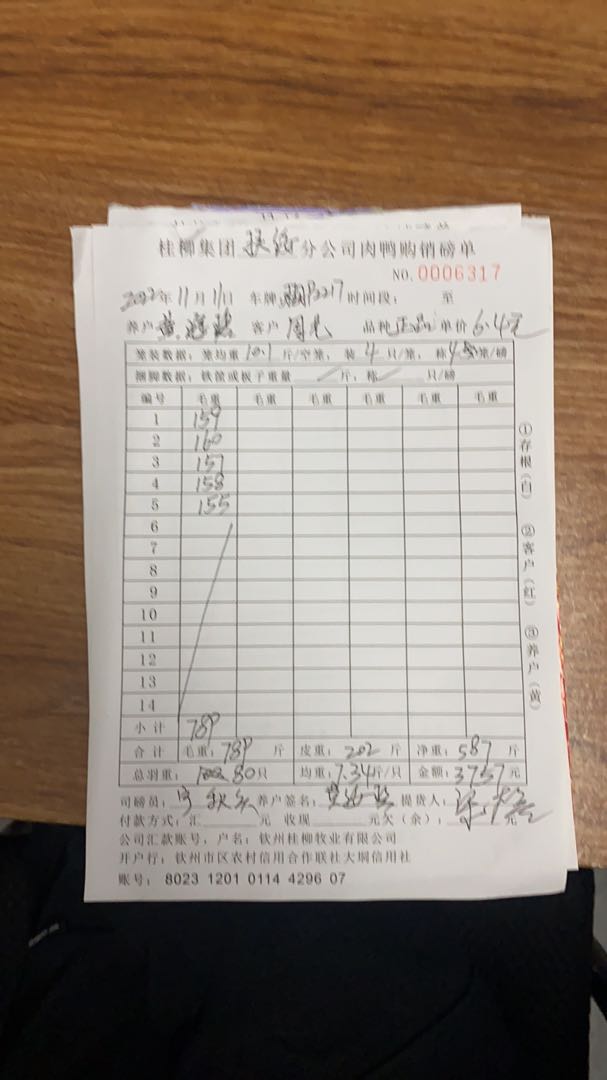 桂柳集团扶绥分公司肉鸭购销磅单
NO.0006317
2022年11月11日 车牌 217 时间段： 至
养户 黄 客户 周 品种正品 单价6.4元
笼装数据：笼均重10.1斤/空笼，装4只/笼，称4笼/磅
捆脚数据：铁筐或板子重量 斤，称 只/磅
编号 毛重 毛重 毛重 毛重 毛重 毛重
1 159
2 160
3 157
4 158
5 155
6
7
8
9
10
11
12
13
14
小计 789
合计 毛重：789斤 皮重：202斤 净重：587斤
总羽重：80只 均重：7.34斤/只 金额：3757元
司磅员： 养户签名： 提货人：
付款方式：汇 元 收现 元欠（余）： 元
公司汇款账号，户名：钦州桂柳牧业有限公司
开户行：钦州市区农村信用合作联社大垌信用社
账号： 8023 1201 0114 4296 07
①存根（白） ②客户（红） ③养户（黄）